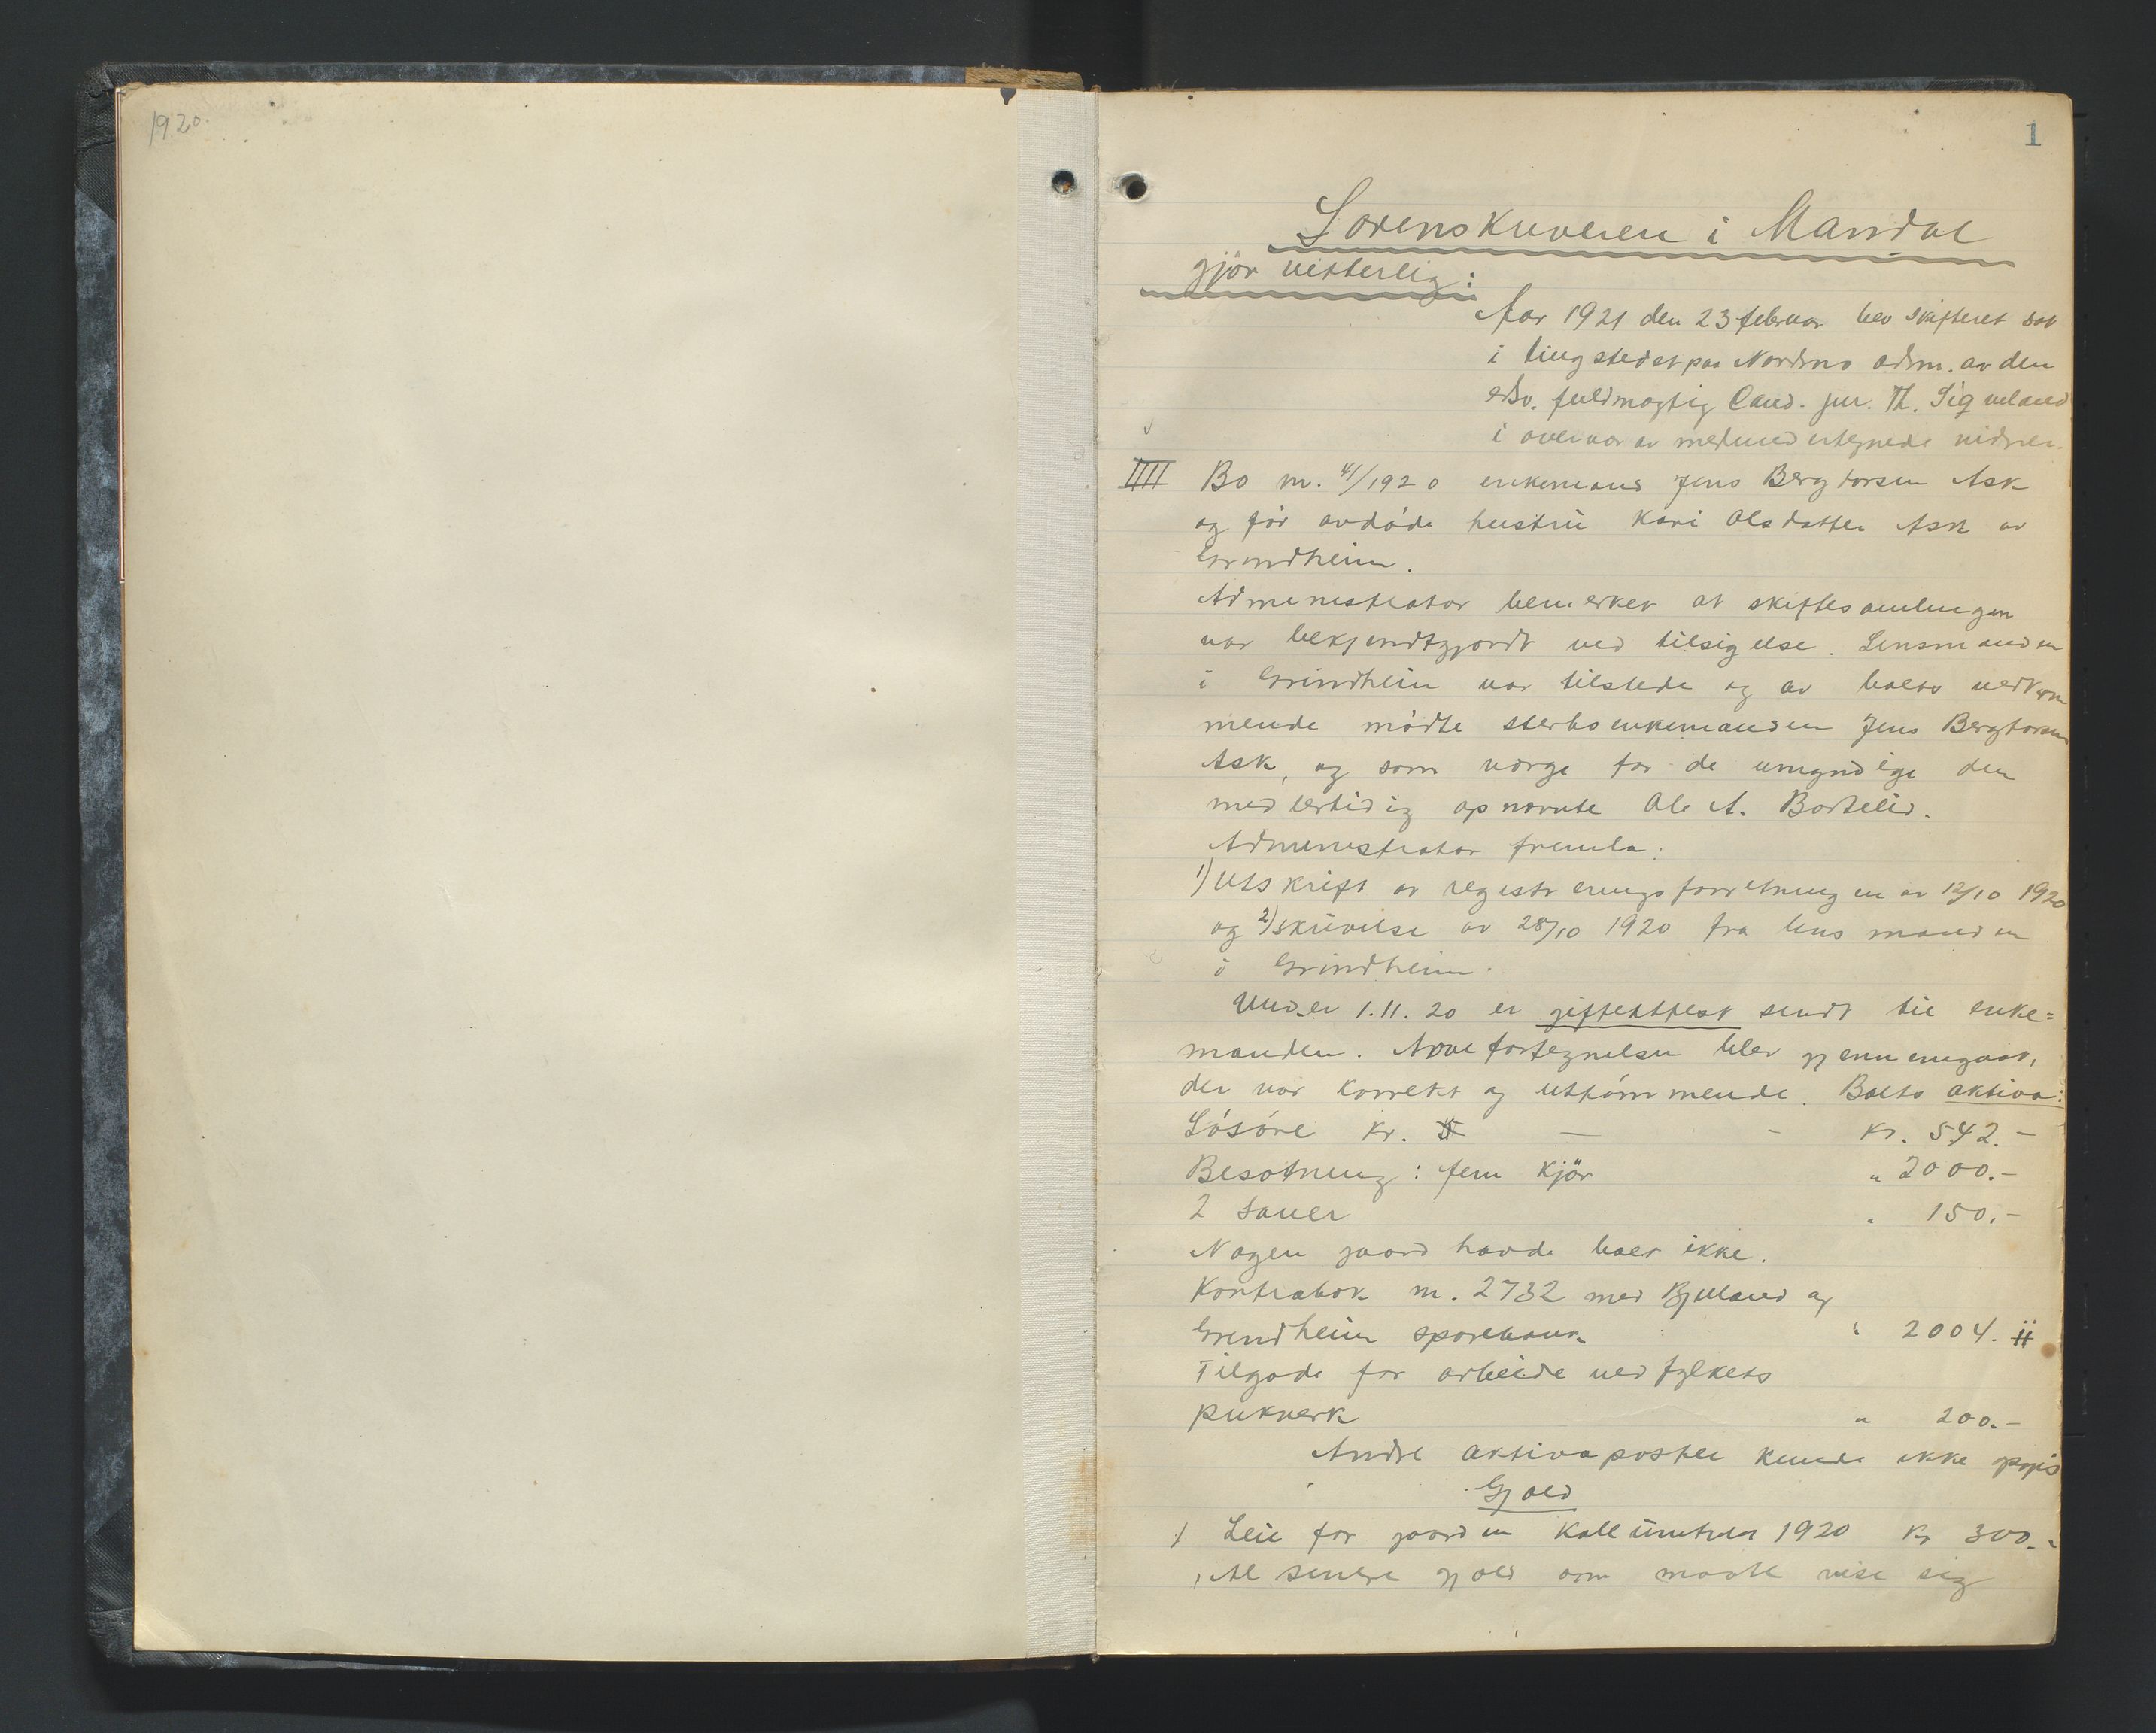 1920.
1
Sorenskriveren i Mandal
gjör vitterlig:
Aar 1921 den 23 februar blev skifteret sat
i tingstedet paa Nordmo adm. av den
edsv. fuldmægtig Cand. jur. Th. Sigveland
i overvær av medundertegnede vidner.
IIII Bo nr. 41/1920 enkemand Jens Bergtorsen Ask
og før avdöde hustru Kari Olsdatter Ask av
Grindheim.
Administrator bemerket at skiftesamlingen
var bekjendtgjordt ved tilsigelse. Lensmanden
i Grindheim var tilstede og av boets vedkom
mende mödte sterboenkemanden Jens Bergtorsen
Ask, og som værge for de umyndige den
midlertidig opnævnte Ole A. Bortelid.
Administrator fremla:
1) Utskrift av registreringsforretningen av 12/10 1920
og 2) skrivelse av 28/10 1920 fra lensmanden
i Grindheim.
Under 1.11.20 er gifteattest sendt til enke=
manden. Arvefortegnelsen blev gjennemgaat,
den var korrekt og uttömmende. Boets aktiva:
Lösöre kr. - kr. 542.-
Besætning: fem kjör " 2000.-
2 sauer " 150.-
Nogen gaard havde boet ikke.
Kontrabok nr. 2732 med Bjelland og
Grindheim sparebank " 2004.
Tilgode for arbeide ved fylkets
pukverk " 200.-
Andre aktivaposter kunde ikke opgis
Gjæld
1) Leie for gaarden 1920 kr 300.-
Al senere gjæld som maatte vise sig